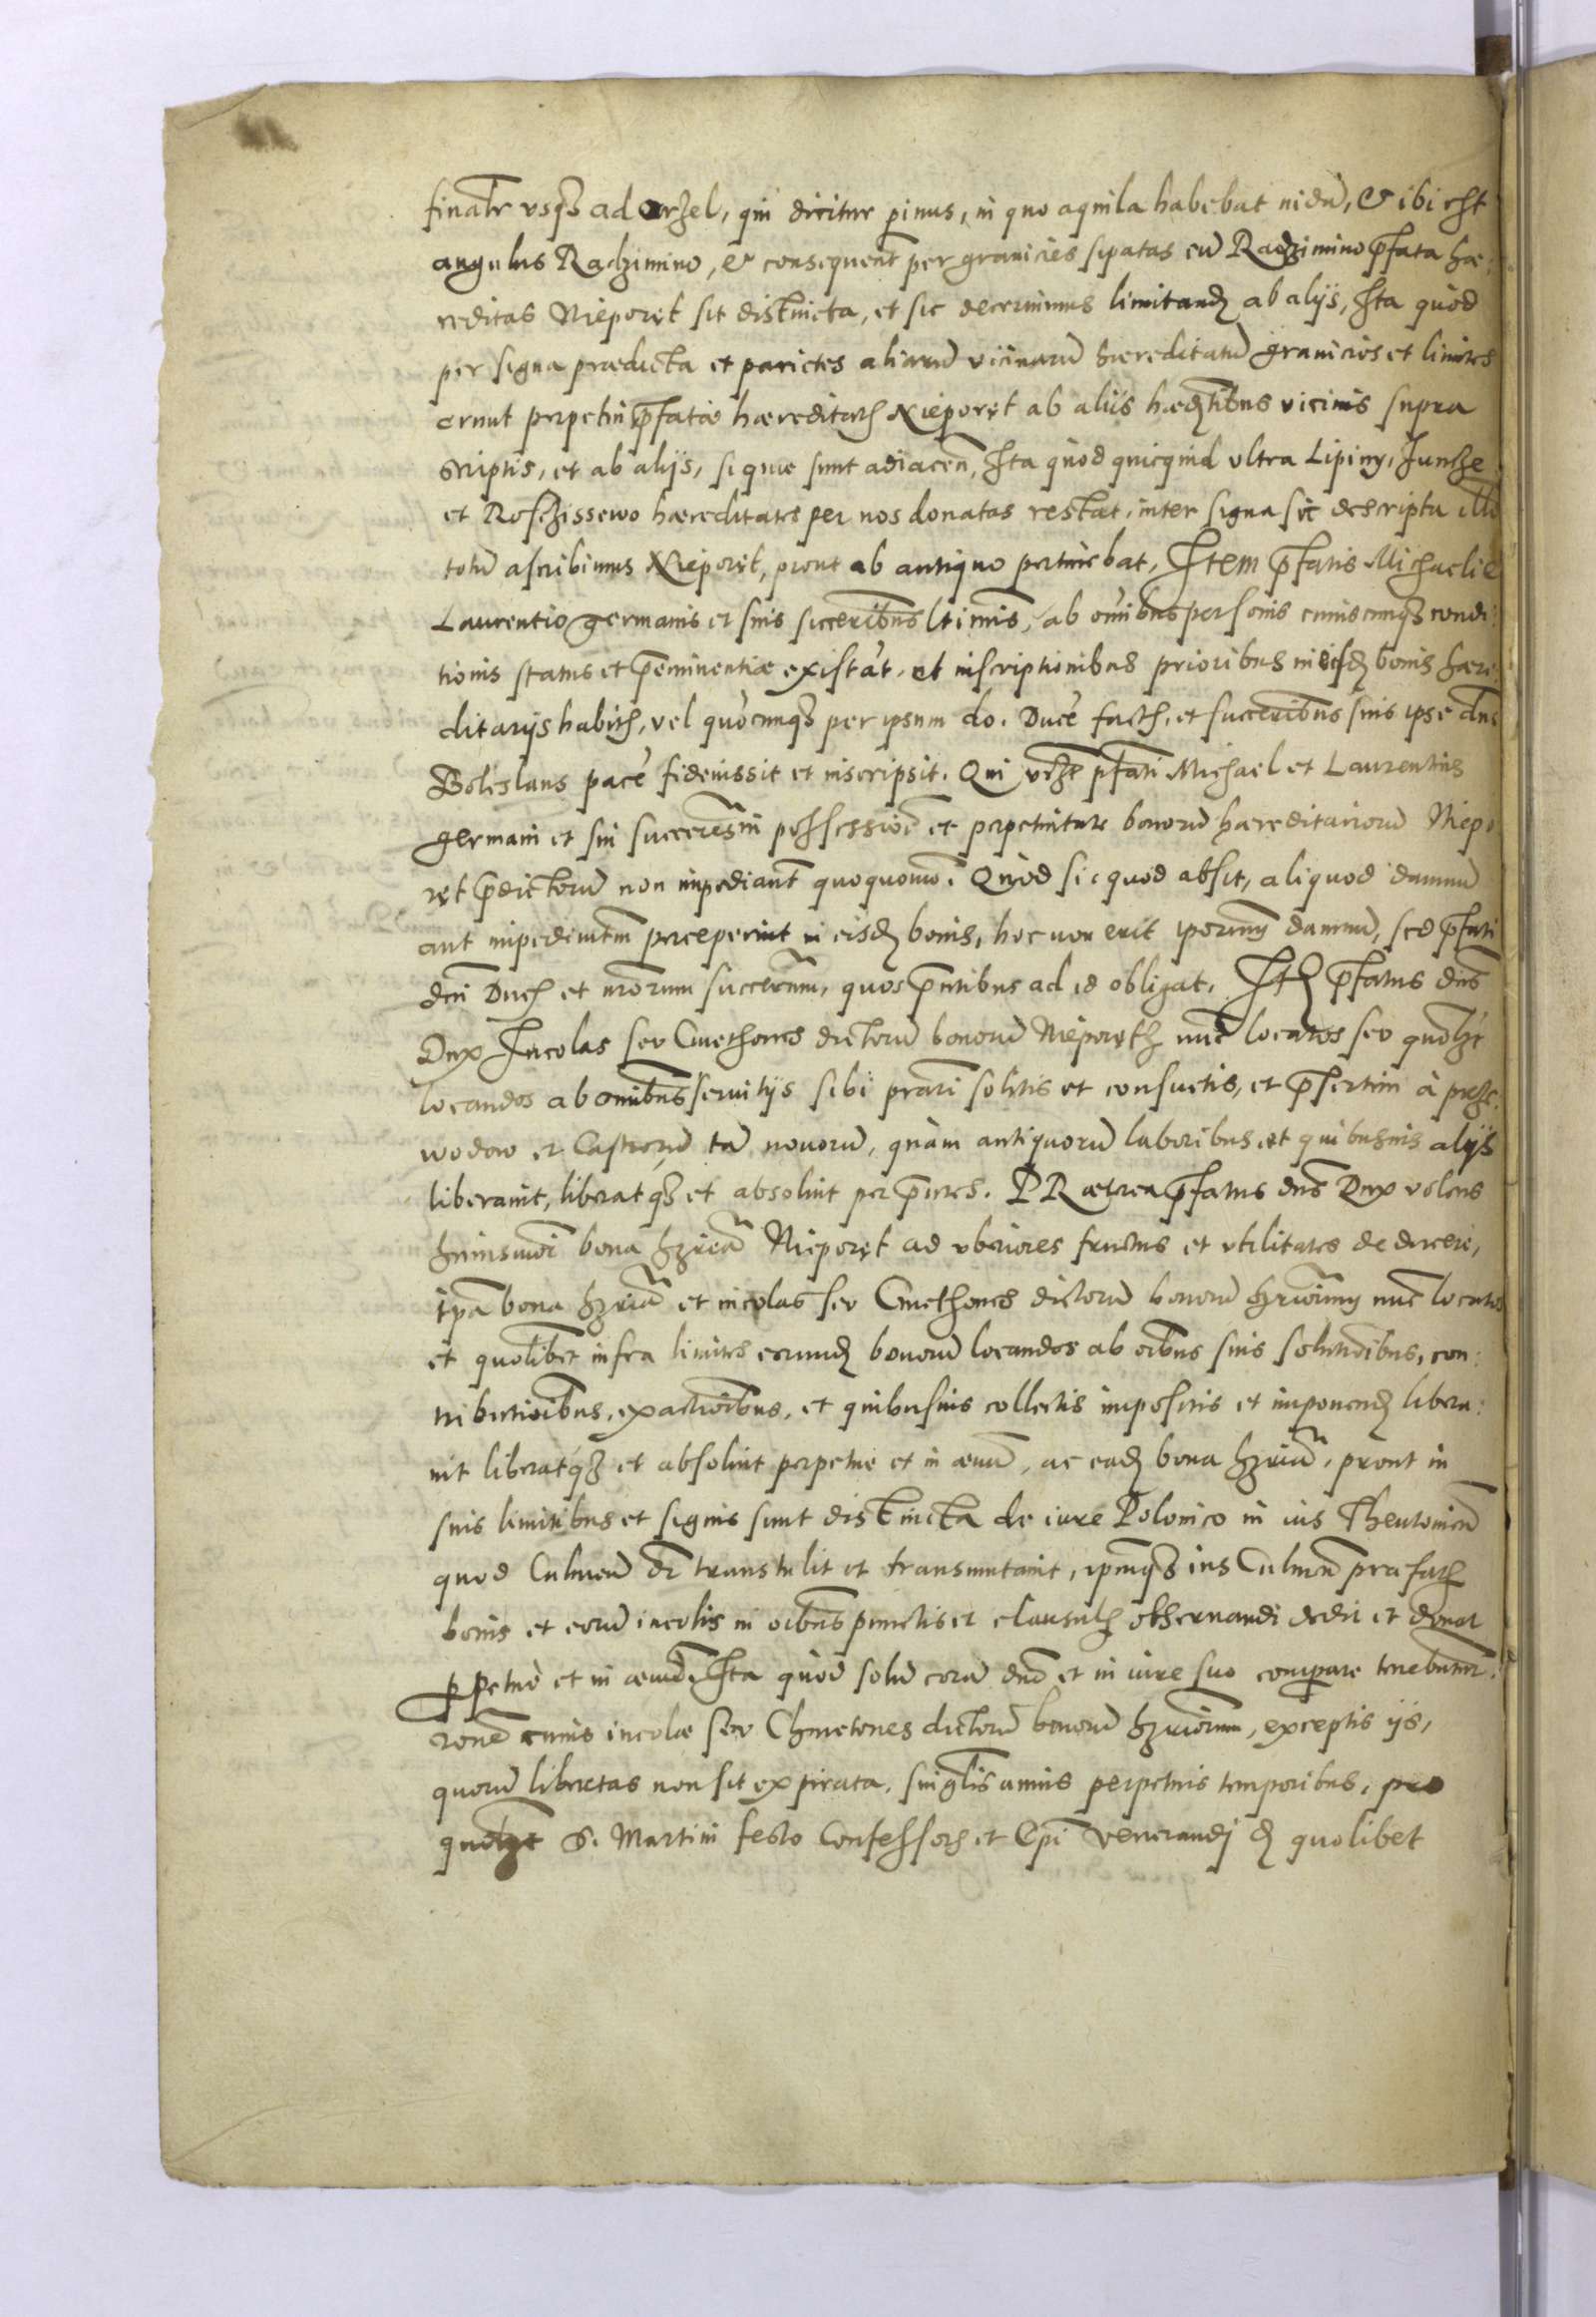 finalr̃ vsq₃ ad orzel, qui dicitur pinus, in quo aquila habebat nidũ, & ibi est
angulus Radzimino, & consequent̃ per granicies sipatas cũ Radzimino p̃fata hæ:
reditas Nieporęt sit distincta, et sic decernimus limitand ab alijs, Ita quòd
per signa prædicta et parietes aliarũ vicinarũ hæreditatũ granicies et limites
erunt perpetui p̃fatæ hæreditatis Nieporęt ab alijs hæditibus vicinis supra
scriptis, et ab alijs, si quæ sunt adiacen̄, Ita quòd quicquid ultra Lipiny, Juncze
et Rosczissewo hæreditates per nos donatas restat, inter signa sic descripta illũ
totũ ascribimus Nieporęt, prout ab antiquo pertinebat, Item p̃fatis Michaeli &
Laurentio germanis et suis succeribus ltimis, ab om̃ibus personis cuiuscunq₃ condi:
tionis status et p̃eminentiæ existãt, et inscriptionibus prioribus in eisd bonis hære:
ditarijs habitis, vel quõcunq₃ per ipsum do. Ducẽ factis, et succeribus suis ipse dns
Boleslaus pacẽ fideiussit et inscripsit. Qui p̃fati Michael et Laurentius
germani et sui succeres in possessiõe et perpetuitate bonorũ hæreditariorũ Niepo
ręt p̃dictorũ non impediant̃ quoquomõ. Quòd si quod absit, aliquod damnũ
aut impedimtm perceperint in eisd bonis, hoc non erit iporum damnũ, sed p̃fati
dni Ducis et nrorum succerum, quos p̃ntibus ad id obligat. Itẽ p̃fatus dns
Dux Incolas seu Cmethones dictorũ bonorũ Nieporęth nũc locatos seu quolẓt
locandos ab omnibus seruitijs sibi prãri solitis et consuetis, et p̃sertim à prze:
wodow et Castrorũ tã nouorũ, quàm antiquorũ laboribus et quibusuis alijs
liberauit, liberatq₃ et absoluit per p̃ntes. PRæterea p̃fatus dns Dux volens
huiusmõi bona hæria Nieporęt ad vberiores fructus et vtilitates deducere,
ipa bona hæria et incolas seu Cmethones dictorũ bonorũ hæriorum nũc locatos
et quolibet infra limites eorund bonorũ locandos ab oibus suis solutioibus, con:
tributioibus, exactioibus, et quibusuis collectis impositis et imponend libera:
uit liberatq₃ et absoluit perpetue et in æuũ, ac ead bona hæria, prout in
suis limitibus et signis sunt distincta de iure Polonico in ius Theutonicũ
quod Culmen̄ dr̃ transtulit et transmutauit, ipmq₃ ius Culmen̄ præfatis
bonis et eorũ incolis in oibus punctis et clausulis obseruandi dedit et donat
perpetuò et in æuũ. Ita quòd solũ corã dno et in iure suo comparere tenebuntur.
rone cuius incolæ seu Chmetones dictorũ bonorũ hæriorum, exceptis ijs,
quorũ libertas non sit expirata, singlis annis perpetuis temporibus, pro
quolẓt S. Martini festo Confessoris et Epi venerandi d quolibet